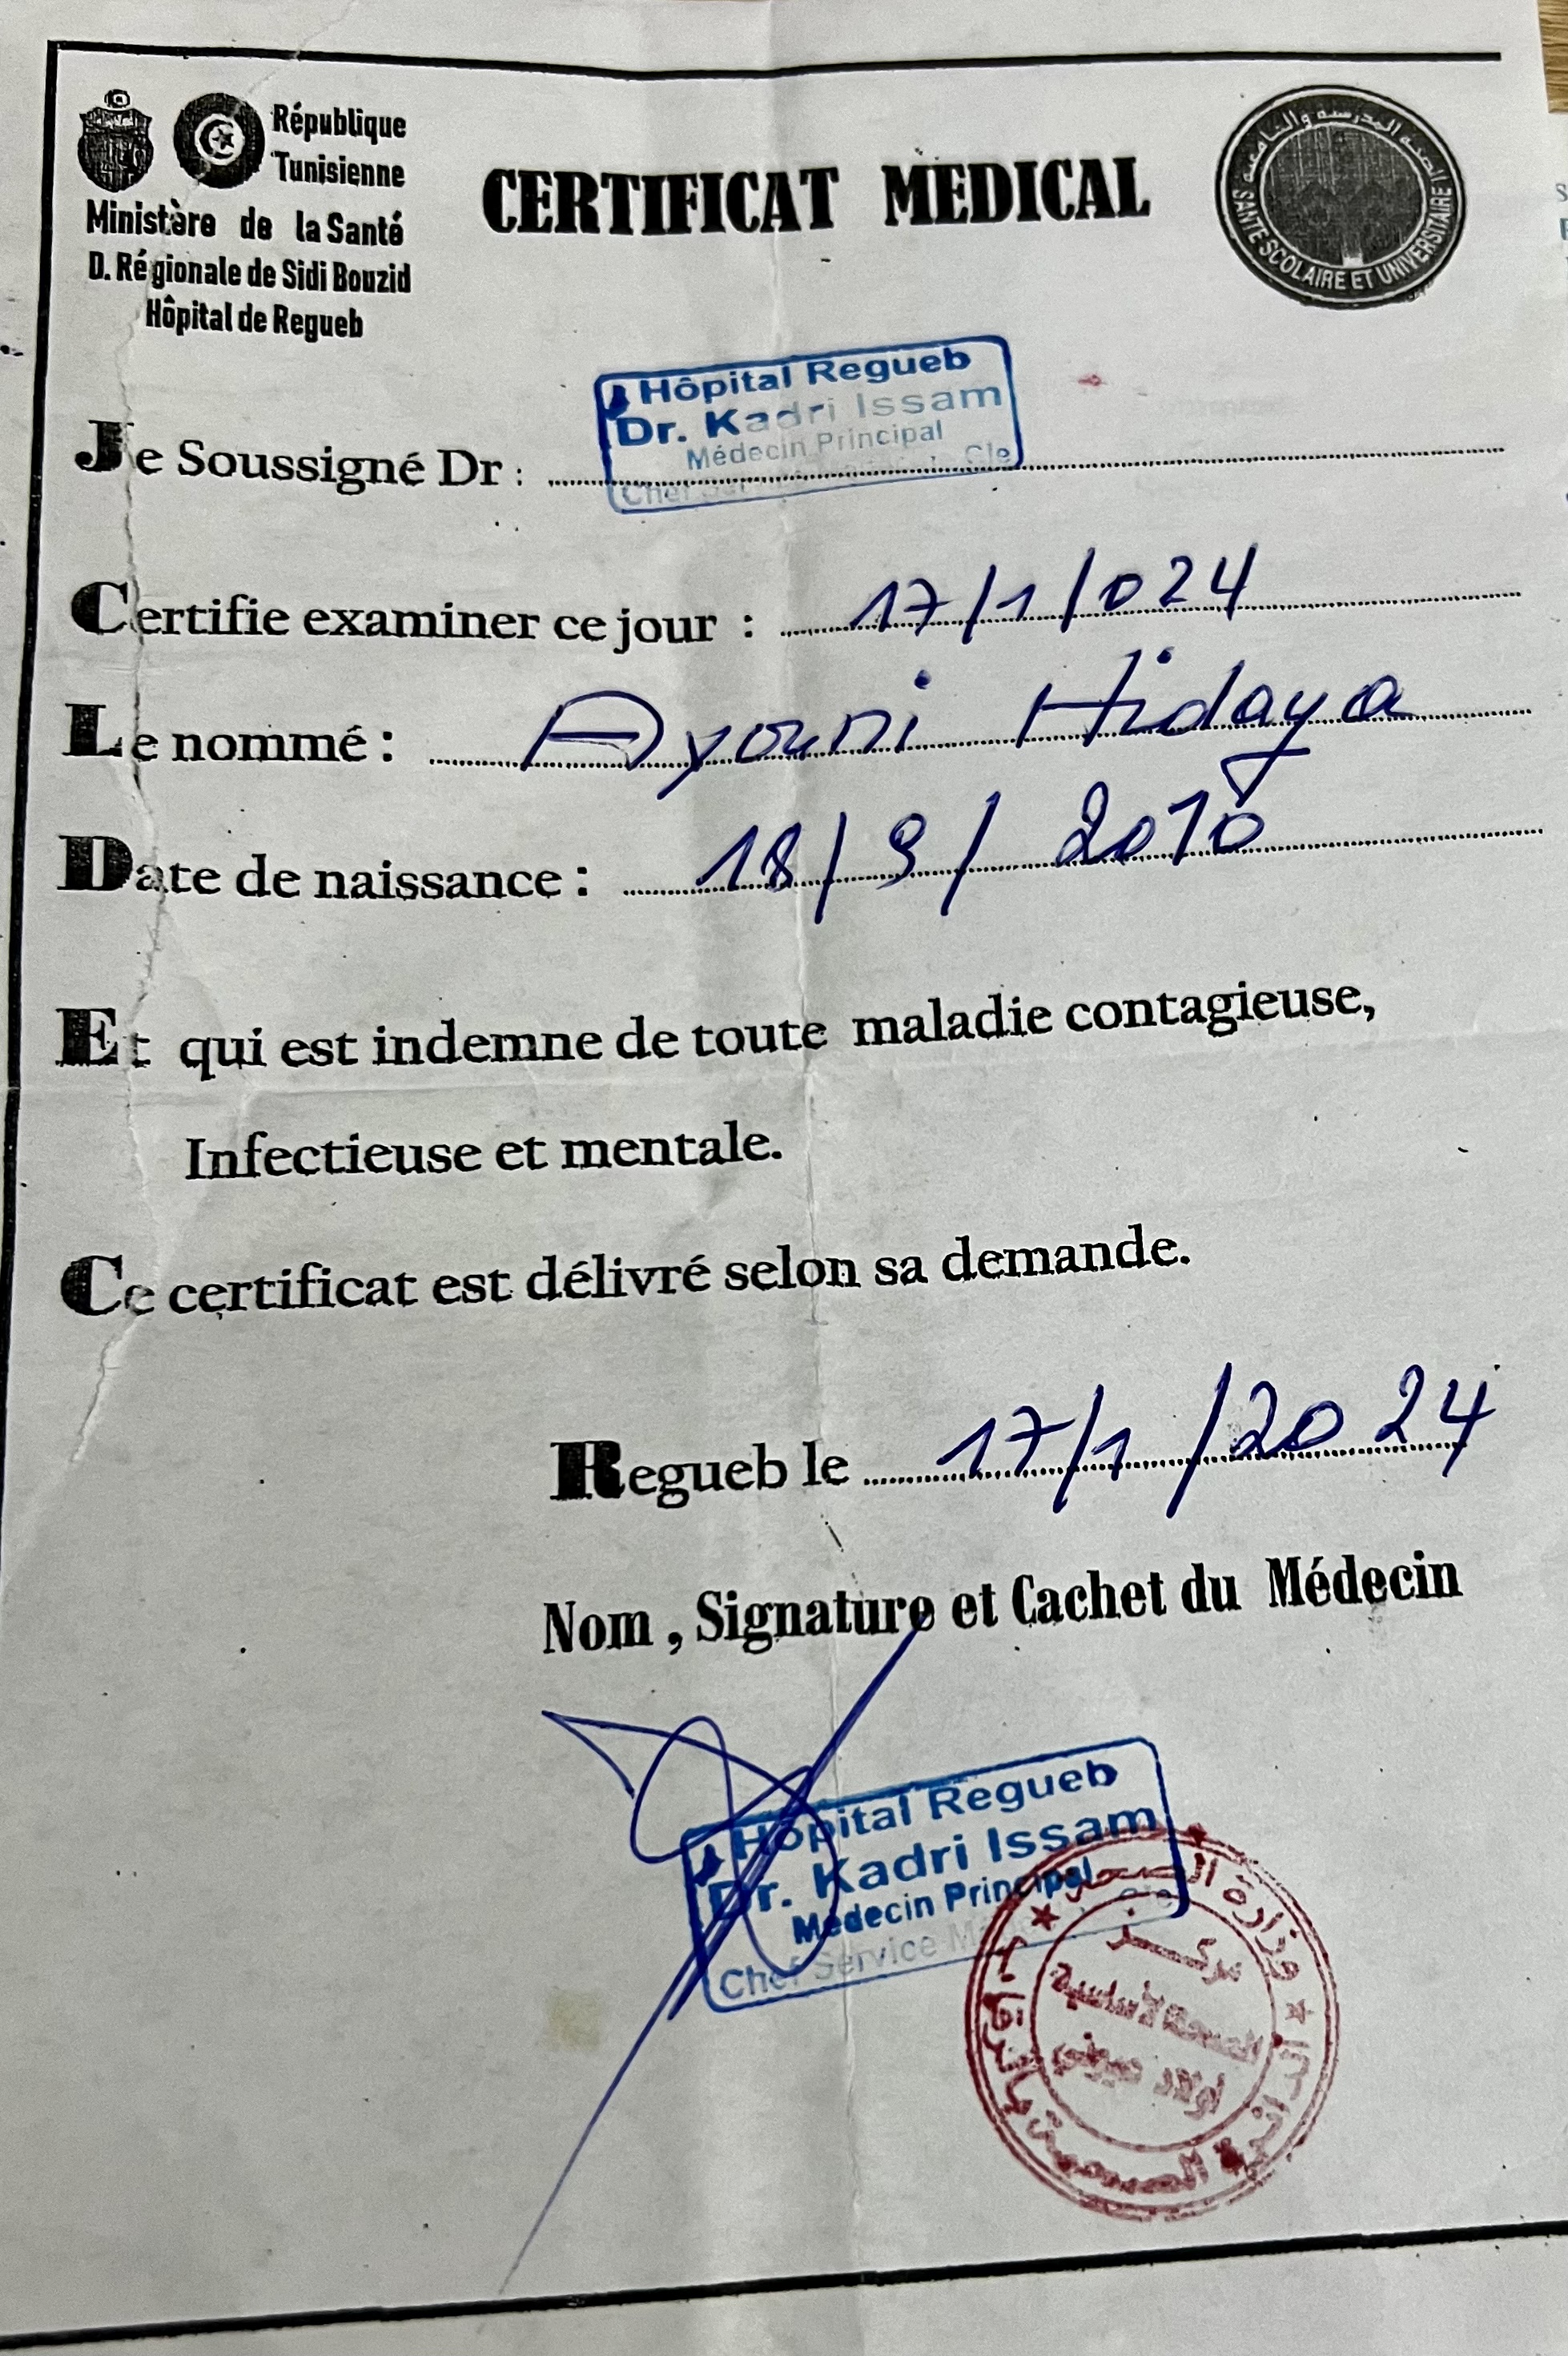 République
Tunisienne
Ministère de la Santé
D. Régionale de Sidi Bouzid
Hôpital de Regueb
CERTIFICAT MEDICAL
الصحة المدرسية والجامعية
SANTE SCOLAIRE ET UNIVERSITAIRE
Hôpital Regueb
Dr. Kadri Issam
Médecin Principal
Chef Cle
Je Soussigné Dr :
Certifie examiner ce jour : 17/1/024
Le nommé : Ayouni Hidaya
Date de naissance : 18/9/2010
Et qui est indemne de toute maladie contagieuse,
Infectieuse et mentale.
Ce certificat est délivré selon sa demande.
Regueb le 17/1/2024
Nom , Signature et Cachet du Médecin
Hôpital Regueb
Dr. Kadri Issam
Médecin Principal
Chef Service
وزارة الصحة
مركز
الصحة الأساسية
أولاد